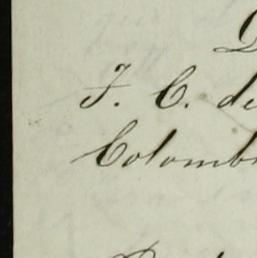 D
F. C. de
Colomb